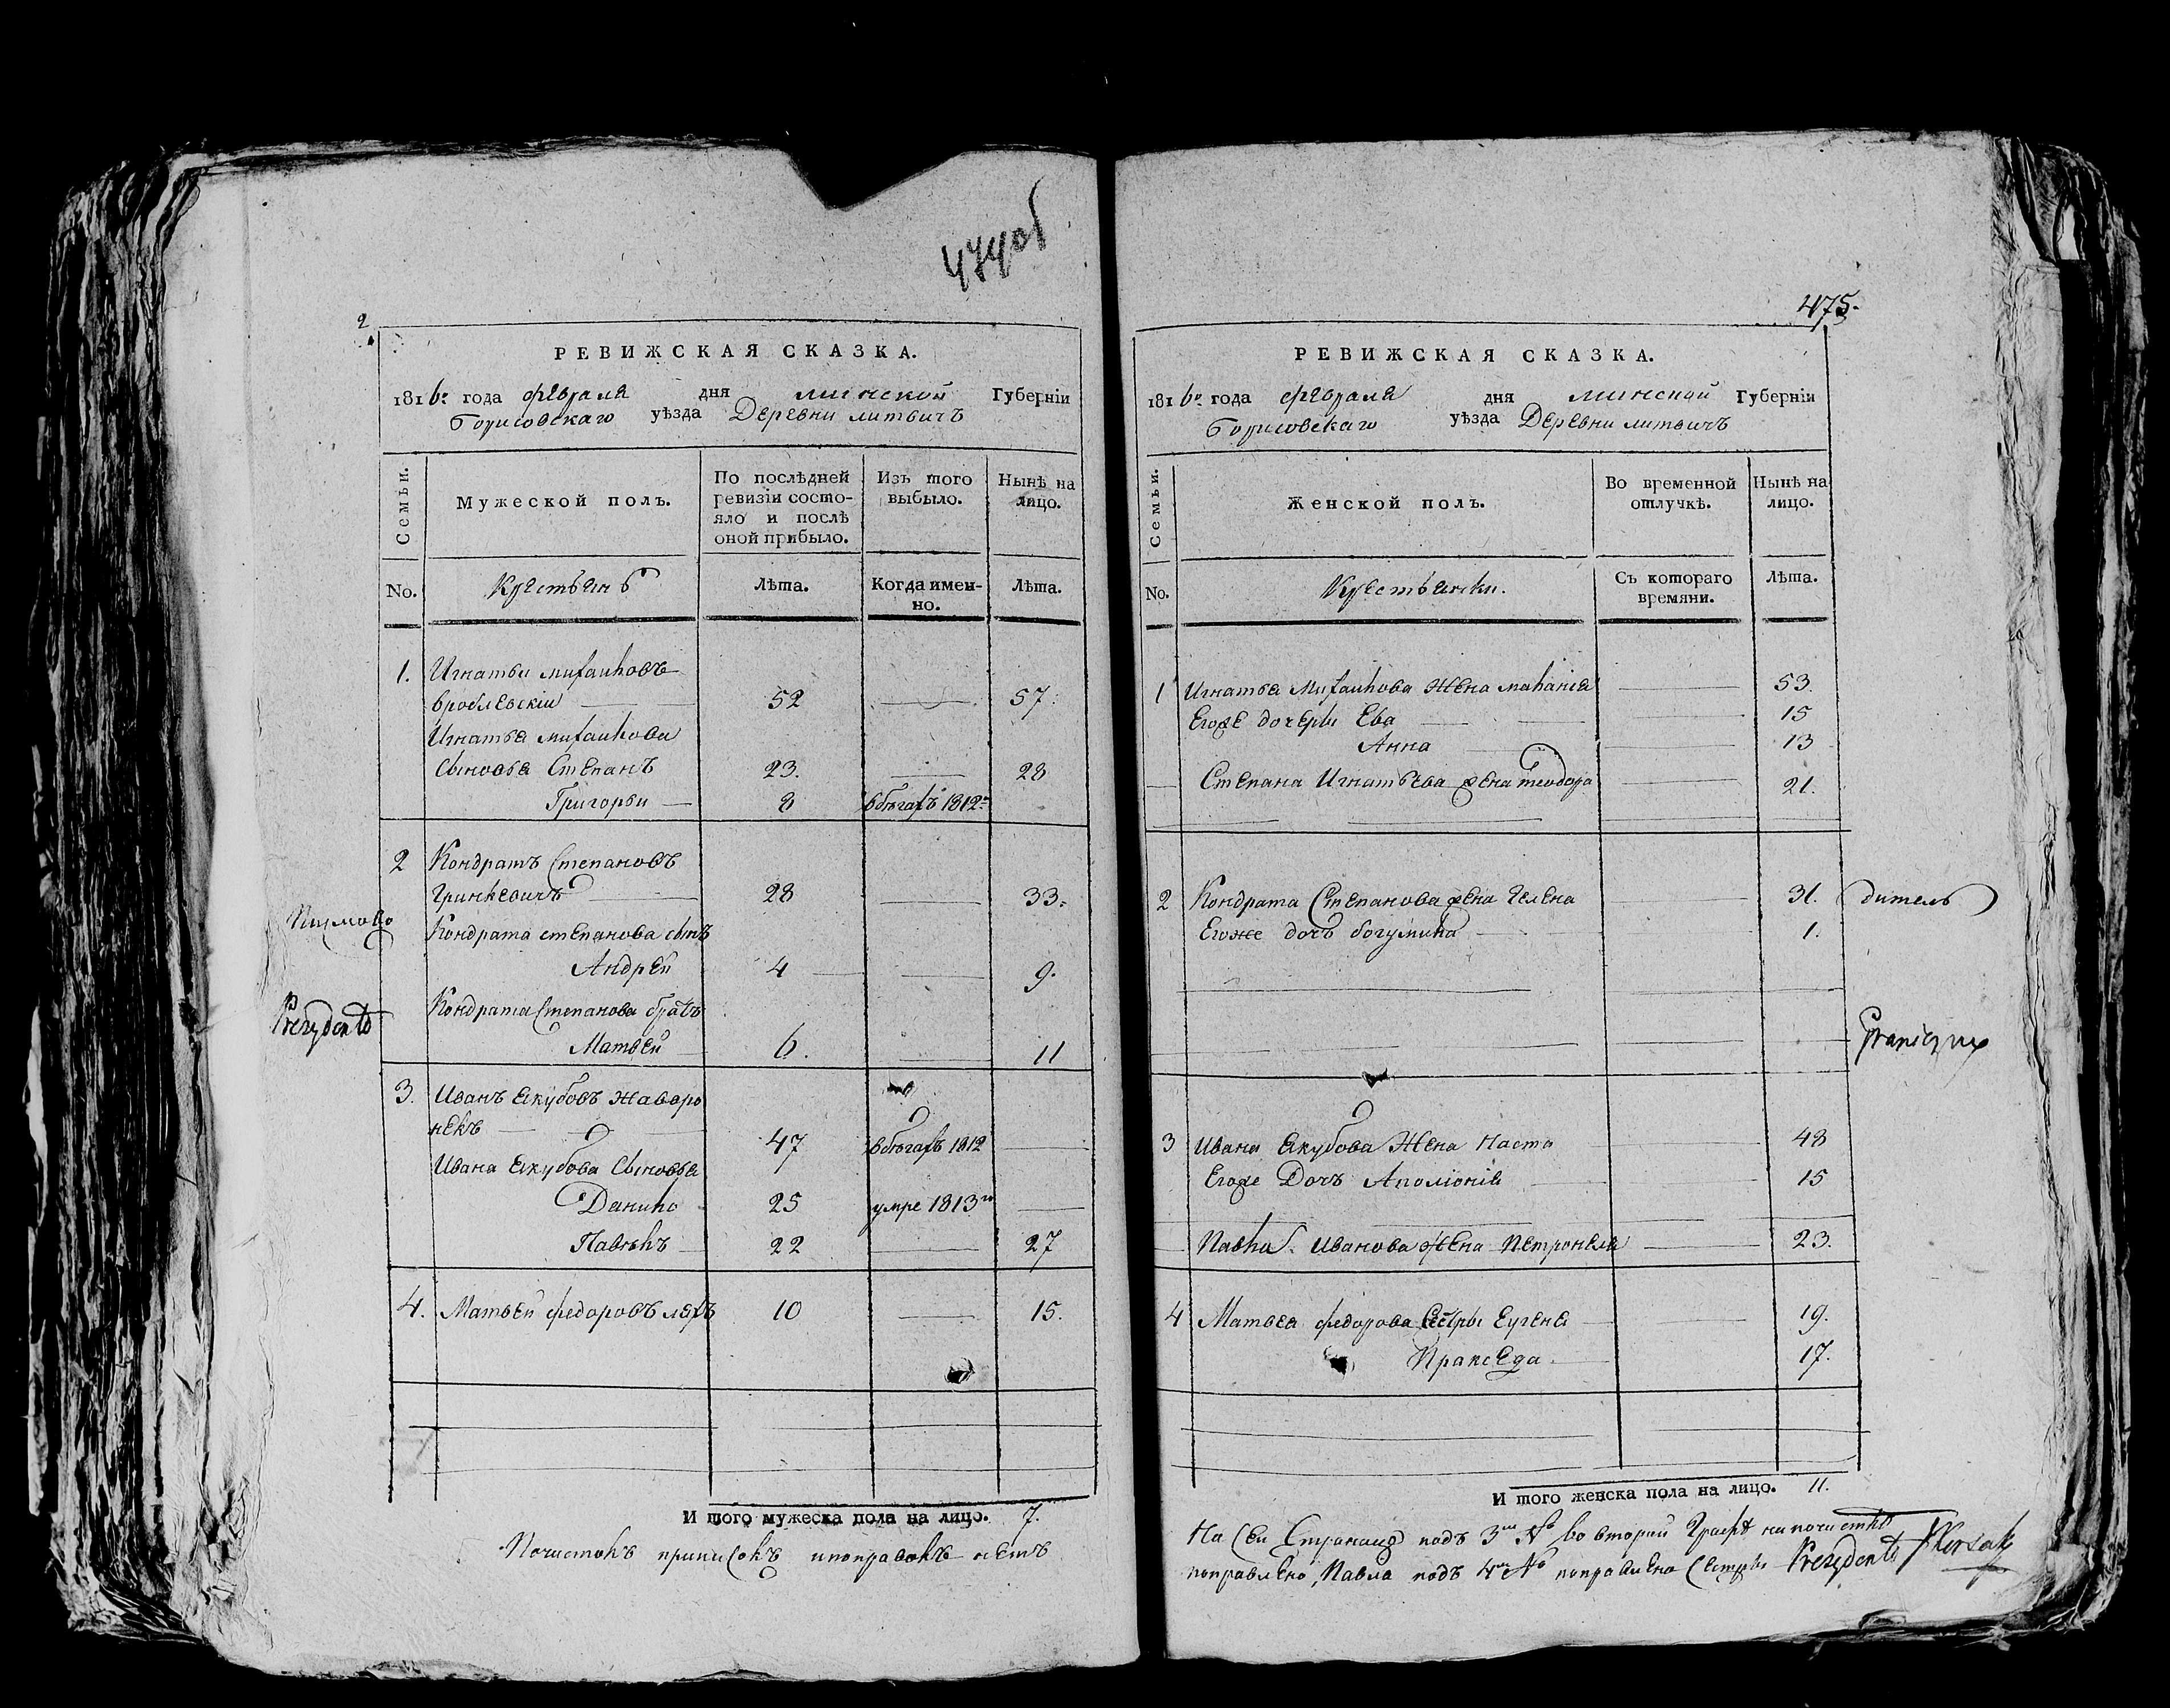 474об
2
РЕВИЖСКАЯ СКАЗКА.
1816го года февраля дня минской Губерніи
Борисовскаго уѣзда Деревни литвичъ
Семьи.
Мужеской полъ.
По послѣдней ревизіи состо-
яло и послѣ оной прибыло.
Изъ того выбыло.
Нынѣ на лицо.
No.
Крестьянъ
Лѣта.
Когда имен-
но.
Лѣта.
1. Игнатьи михаиловъ
вроблевскіи 52 57
Игнатья михаилова
Сыновья Степанъ 23. 28
Григорьи 8 вбѣгахъ 1812
2 Кондратъ Степановъ
Гринкевичъ 28 33
Кондрата степанова сынъ
Андрей 4 9.
Кондрата Степанова братъ
Матвей 6. 11
3. Иванъ якубовъ жаворо
некъ 47 вбѣгахъ 1812
Ивана якубова Сыновья
Данило 25 умре 1813го
Павелъ 22 27
4. Матвей федоровъ ляхъ 10 15.
И того мужеска пола на лицо. 7.
Почистокъ приписокъ ипоправокъ нетъ
Prezydent
475.
РЕВИЖСКАЯ СКАЗКА.
1816го года февраля дня минской Губерніи
Борисовскаго уѣзда Деревни литвичъ
Семьи.
Женской полъ.
Во временной отлучкѣ.
Нынѣ на лицо.
No.
Крестьянки.
Съ котораго времяни.
Лѣта.
1 Игнатья Михаилова Жена маланія 53.
Егоже дочери Ева 15
Анна 13
Степана Игнатьева жена теодора 21.
2 Кондрата Степанова жена Гелена 31.
Егоже дочъ богумила 1.
3 Ивана якубова Жена Наста 48
Егоже Дочъ Аполіонія 15
Павла Иванова жена Петронеля 23.
4 Матвея федорова Сестры Еугеня 19.
Пракседа 17.
И того женска пола на лицо. 11.
дитель
Graniczny
На Сеи Странице подъ 3мъ No во второй Графе
поправлено, Павла подъ 4мъ No поправлено Сестры Prezydent Korsak